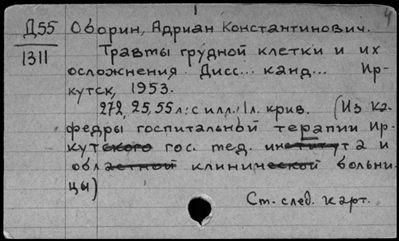 Д55 Оборин, Адриан Константинович.
1311 Травмы грудной клетки и их
осложнения. Дисс... канд... Ир-
кутск, 1953.
272, 25, 55 л. с илл. 1 л. крив. (Из ка-
федры госпитальной терапии Ир-
кутского гос. мед. института и
областной клинической больни-
цы)
См. след. карт.